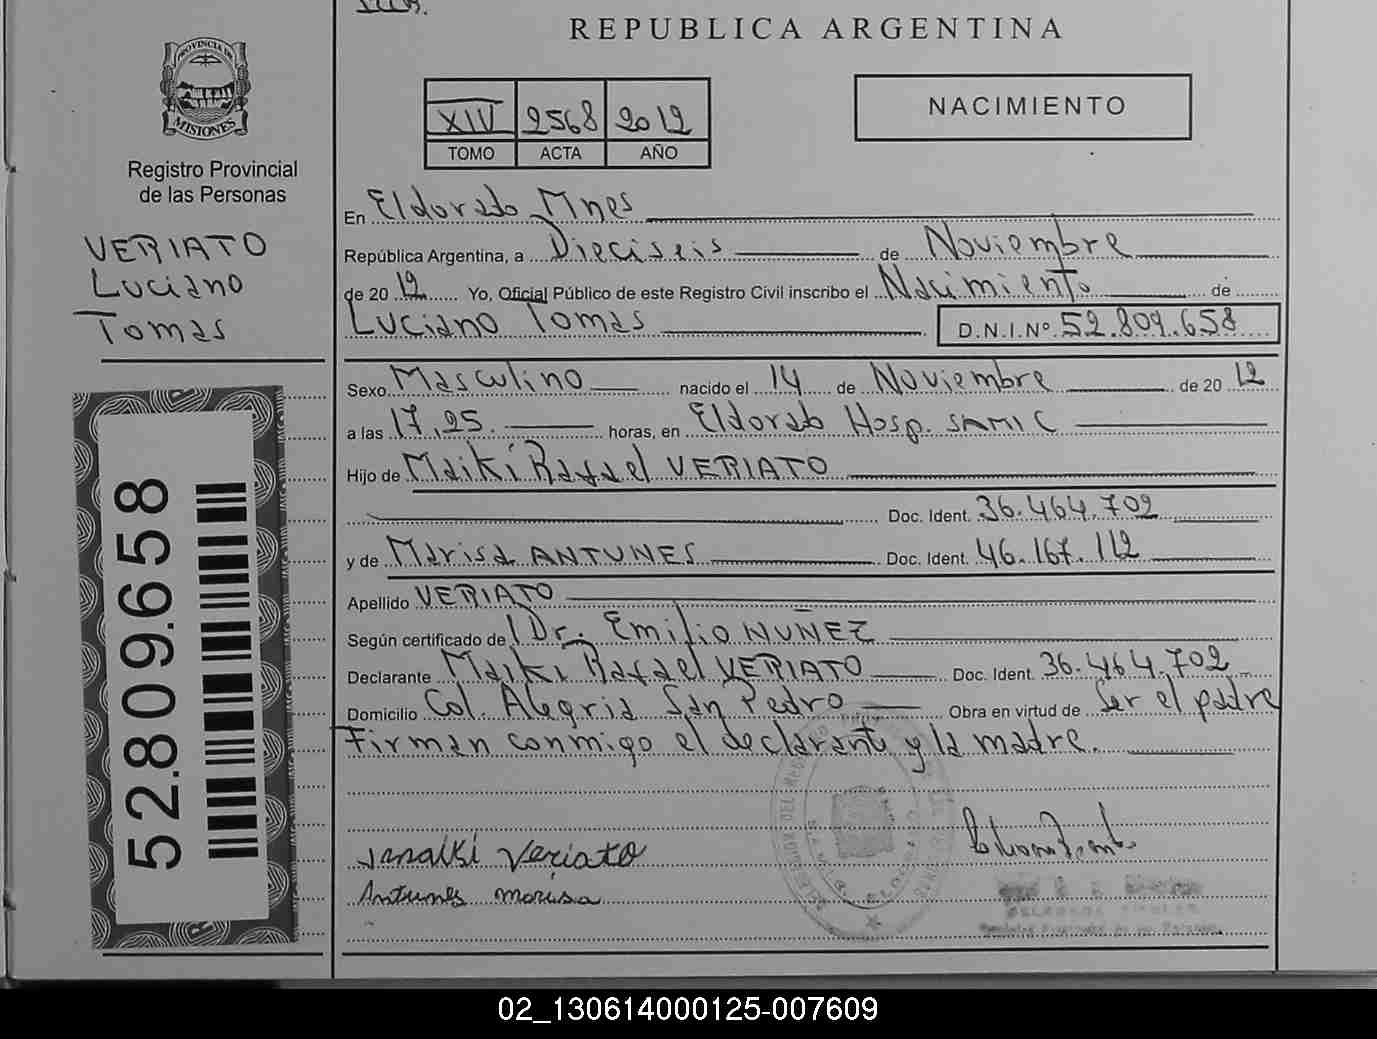 REPUBLICA ARGENTINA
PROVINCIA DE
MISIONES
Registro Provincial
de las Personas
VERIATO
Luciano
Tomas
52.809.658
XIV 2568 2012
TOMO ACTA AÑO
NACIMIENTO
En Eldorado Mnes
República Argentina, a Dieciseis de Noviembre
de 20 12 Yo, Oficial Público de este Registro Civil inscribo el Nacimiento de
Luciano Tomas D.N.I.Nº 52.809.658
Sexo Masculino nacido el 14 de Noviembre de 20 12
a las 17,25. horas, en Eldorado Hosp. SAMIC
Hijo de Maikí Rafael VERIATO
Doc. Ident. 36.464.702
y de Marisa ANTUNES Doc. Ident. 46.167.112
Apellido VERIATO
Según certificado de Dr. Emilio NUÑEZ
Declarante Maikí Rafael VERIATO Doc. Ident. 36.464.702
Domicilio Col. Alegria San Pedro Obra en virtud de Ser el padre
Firman conmigo el declarante y la madre.
Veriato
Antunes Marisa
02_130614000125-007609